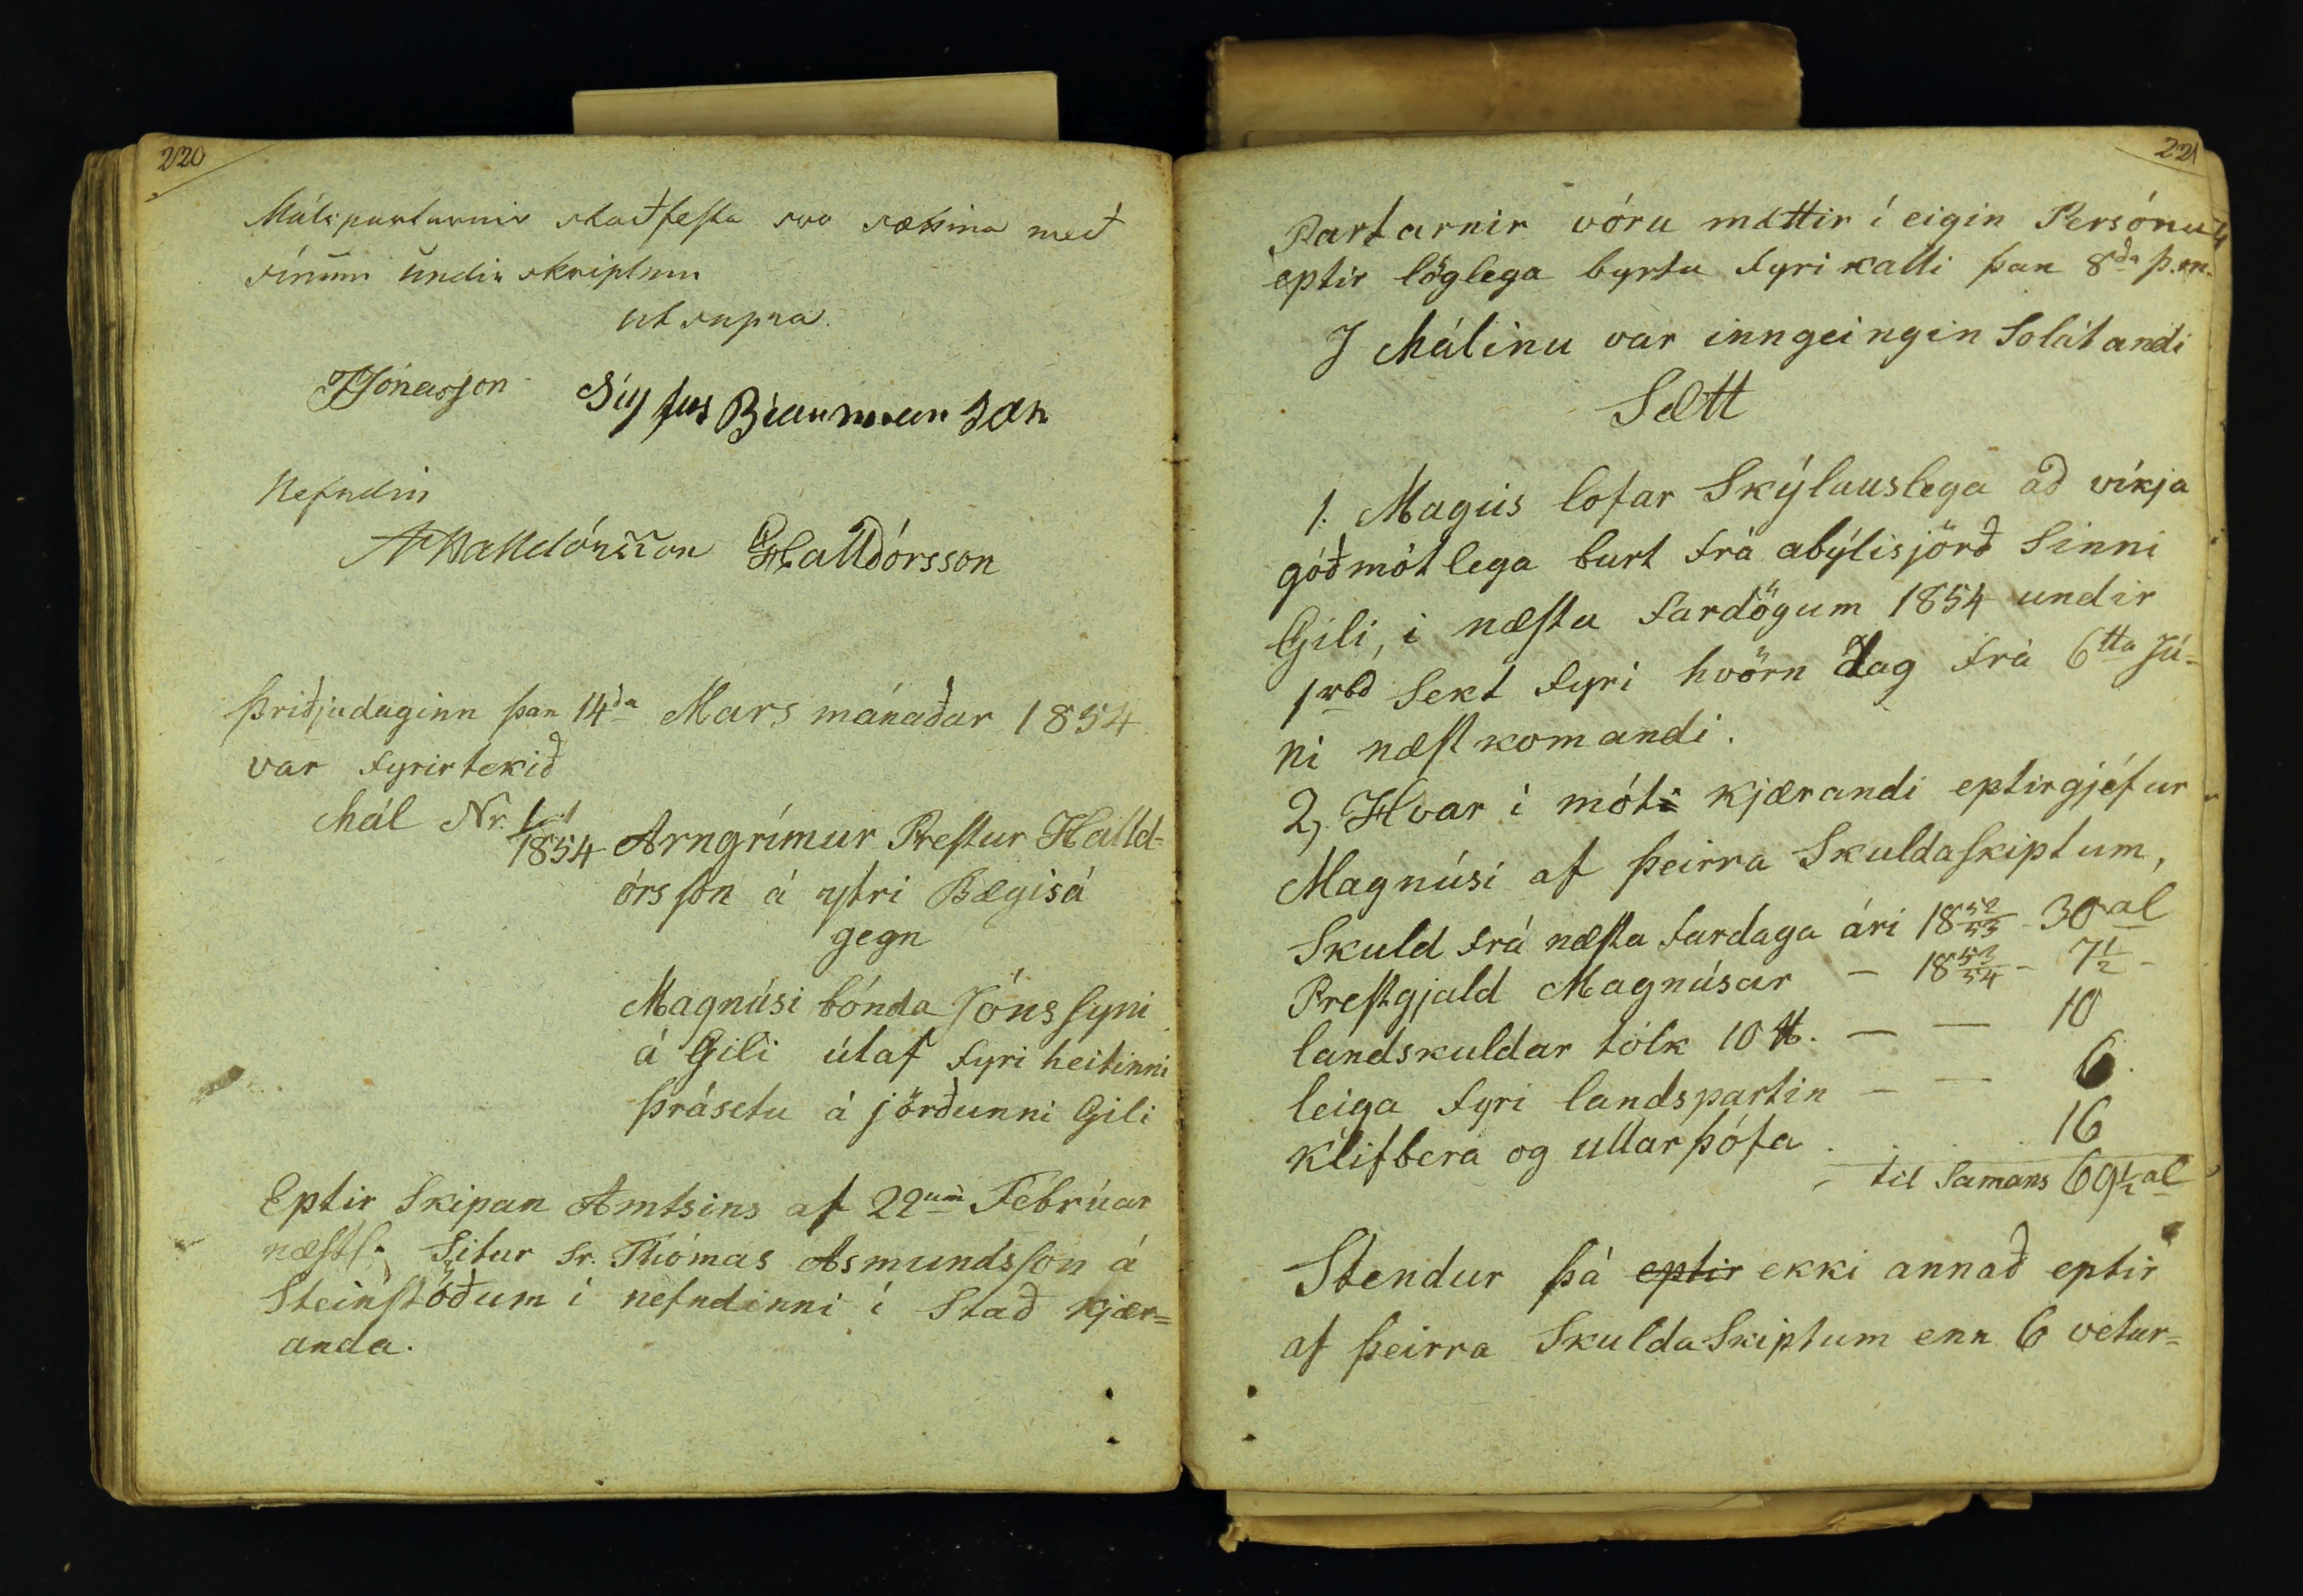 220
Málspartarnir staðfesta svo sættina með
sínum undirskriptum
ut supra.
JJónasson Sigfus Biarnnarson
Nefndin
AHalldórsson GHalldórsson
Þriðjudaginn þan 14da Mars mánaðar 1854
var fyrirtekið
Mál Nr. 1
1854 Arngrímur Prestur Halld-
órsson á ytri Bægisá
gegn
Magnúsi bónda Jónssyni
á Gili útaf fyri heitinni
þrásetu á jörðunni Gili
Eptir Skipan Amtsins af 22um Febrúar
næstl. Situr Sr. Thómas Asmundsson á
Steinstöðum í nefndinni í Stað kjær=
anda.
221
Partarnir vóru mættir í eigin Persónu
eptir löglega byrtu fyrikalli þan 8da þ.m.
J Málinu var inngeingin Solátandi
Sætt
1. Magús lofar Skýlauslega að víkja
góðmótlega burt frá abýlisjörð Sinni
Gili, í næsta fardögum 1854 undir
1rbd Sekt fyri hvörn dag frá 6tta Jú-
ni næstkomandi.
2, Hvar í móti kjærandi eptirgjéfur
Magnúsi af þeirra Skuldaskiptum,
Skuld frá næsta fardaga ári 18 52/53 - 30 al
Prestgjald Magnúsar - 18 53/54 - 7 1/2 -
landskuldar tólk 10 ℔. — — 10
leiga fyri landspartin — — 6.
klifbera og ullarþófa . . . . 16
til Samans 69 1/2 al
Stendur þá eptir ekki annað eptir
af þeirra SkuldaSkiptum enn 6 vetur=